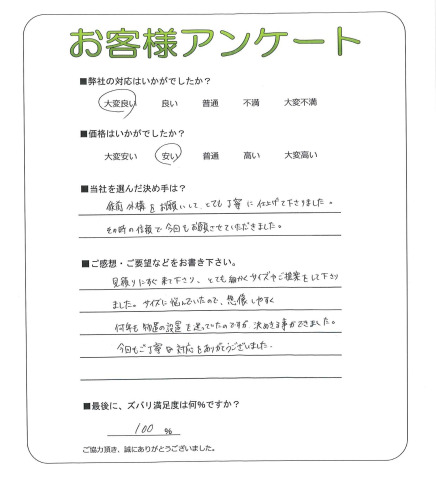 お客様アンケート
■弊社の対応はいかがでしたか？
大変良い 良い 普通 不満 大変不満
■価格はいかがでしたか？
大変安い 安い 普通 高い 大変高い
■当社を選んだ決め手は？
以前外構をお願いして、とても丁寧に仕上げて下さりました。
その時の信頼で今回もお願いさせていただきました。
■ご感想・ご要望などをお書き下さい。
見積りにすぐ来て下さり、とても細かくサイズやご提案をして下さり
ました。サイズに悩んでいたので、想像しやすく
何年も物置の設置を迷っていたのですが決める事ができました。
今回もご丁寧な対応をありがとうございました。
■最後に、ズバリ満足度は何％ですか？
100 %
ご協力頂き、誠にありがとうございました。